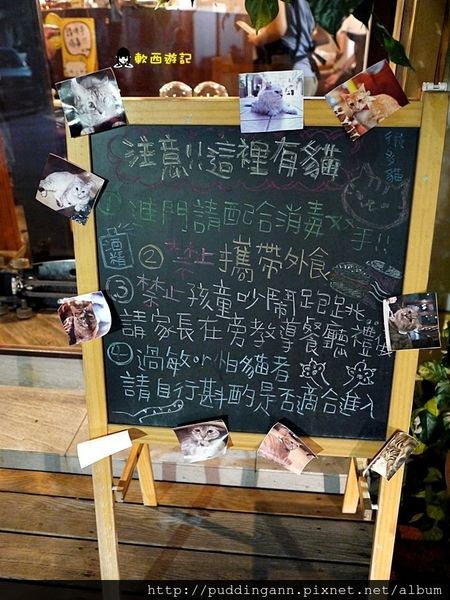 軟西遊記
注意!!這裡有貓
很多貓
① 進門請配合消毒双手!!
酒精
② 禁止攜帶外食
③ 禁止孩童吵鬧跑跳
請家長在旁教導餐廳禮儀
④ 過敏or怕貓者
請自行斟酌是否適合進入
http://puddingann.pixnet.net/album